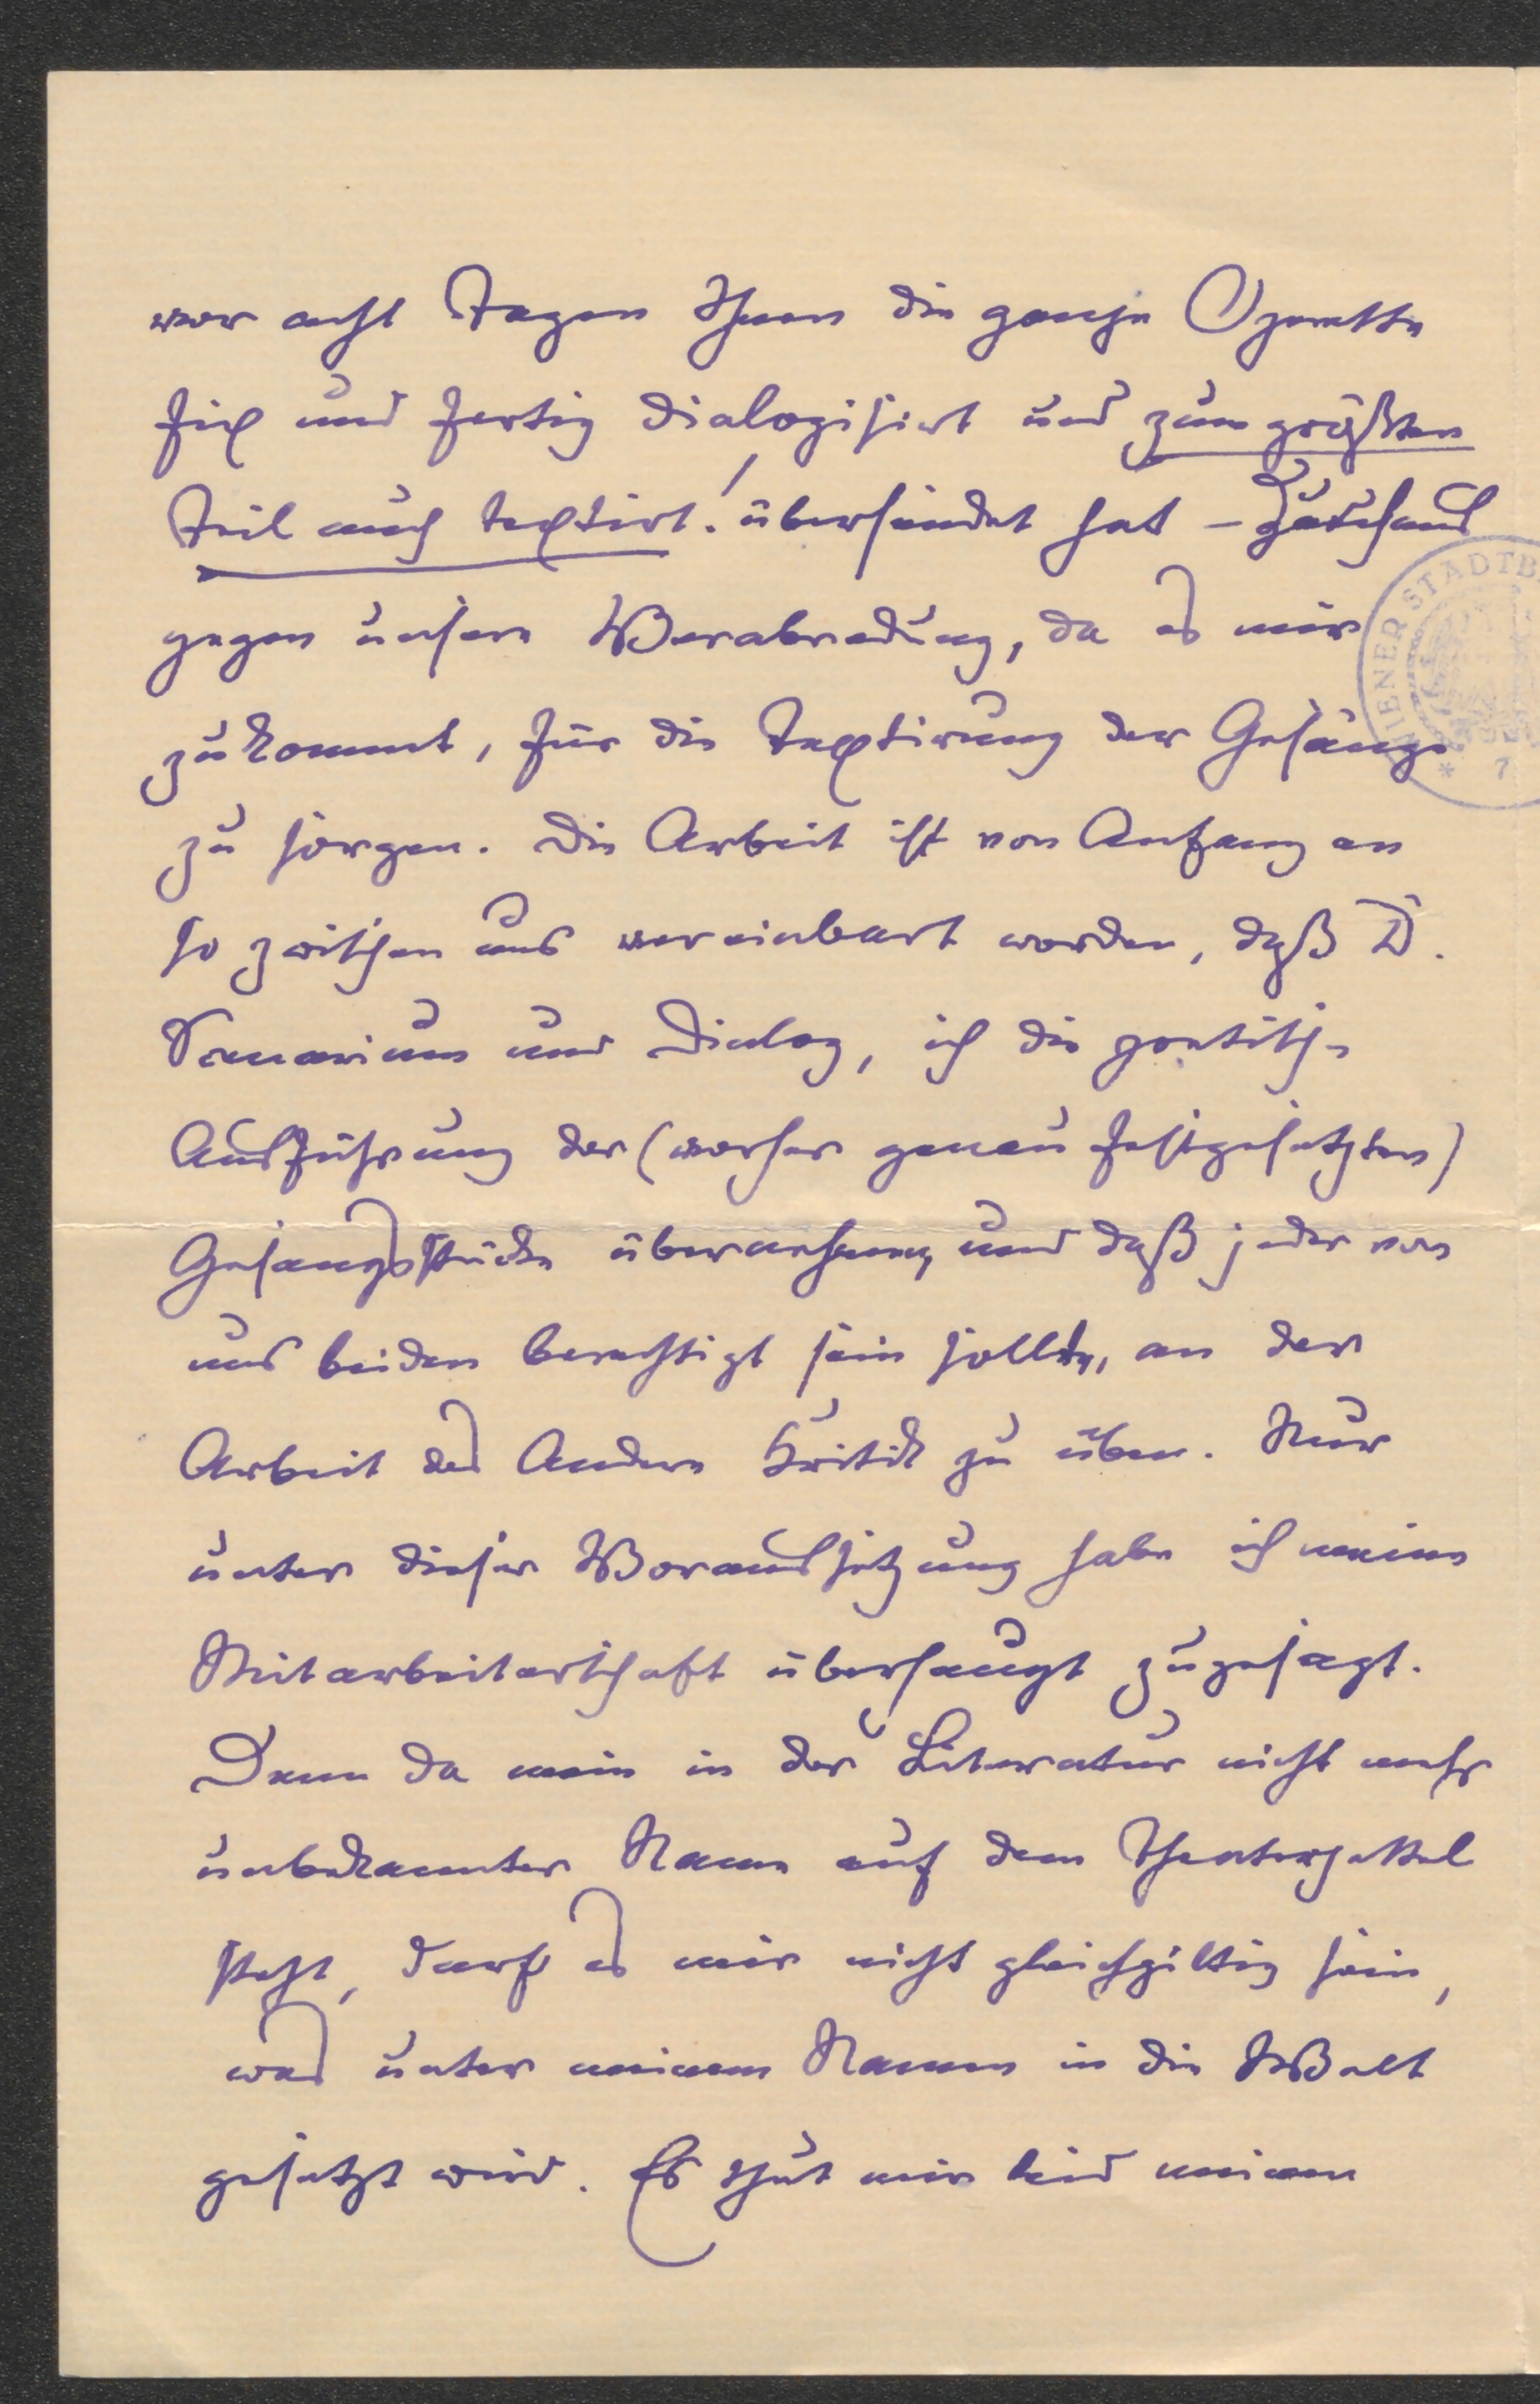 vor acht Tagen Ihnen die ganze Operette
fix und fertig dialogisirt und zum größten
Teil auch textirt! übersendet hat –
gegen unsere Verabredung, da es mir
zukommt, für die Textirung der Gesänge
zu sorgen. Die Arbeit ist von Anfang an
so zwischen uns vereinbart worden, daß D.
Scenarium und Dialog, ich die poetische
Ausführung der (vorher genau festgesetzten)
Gesangsstücke übernehmen, und daß jeder von
uns beiden berechtigt sein sollte, an der
Arbeit des Andern Kritik zu üben. Nur
unter dieser Voraussetzung habe ich meine
Mitarbeiterschaft überhaupt zugesagt.
Denn da mein in der Literatur nicht mehr
unbekannter Name auf dem Theaterzettel
steht, darf es mir nicht gleichgiltig sein,
was unter meinem Namen in die Welt
gesetzt wird. Es thut mir leid meinem
WIENER STADTB
* 7